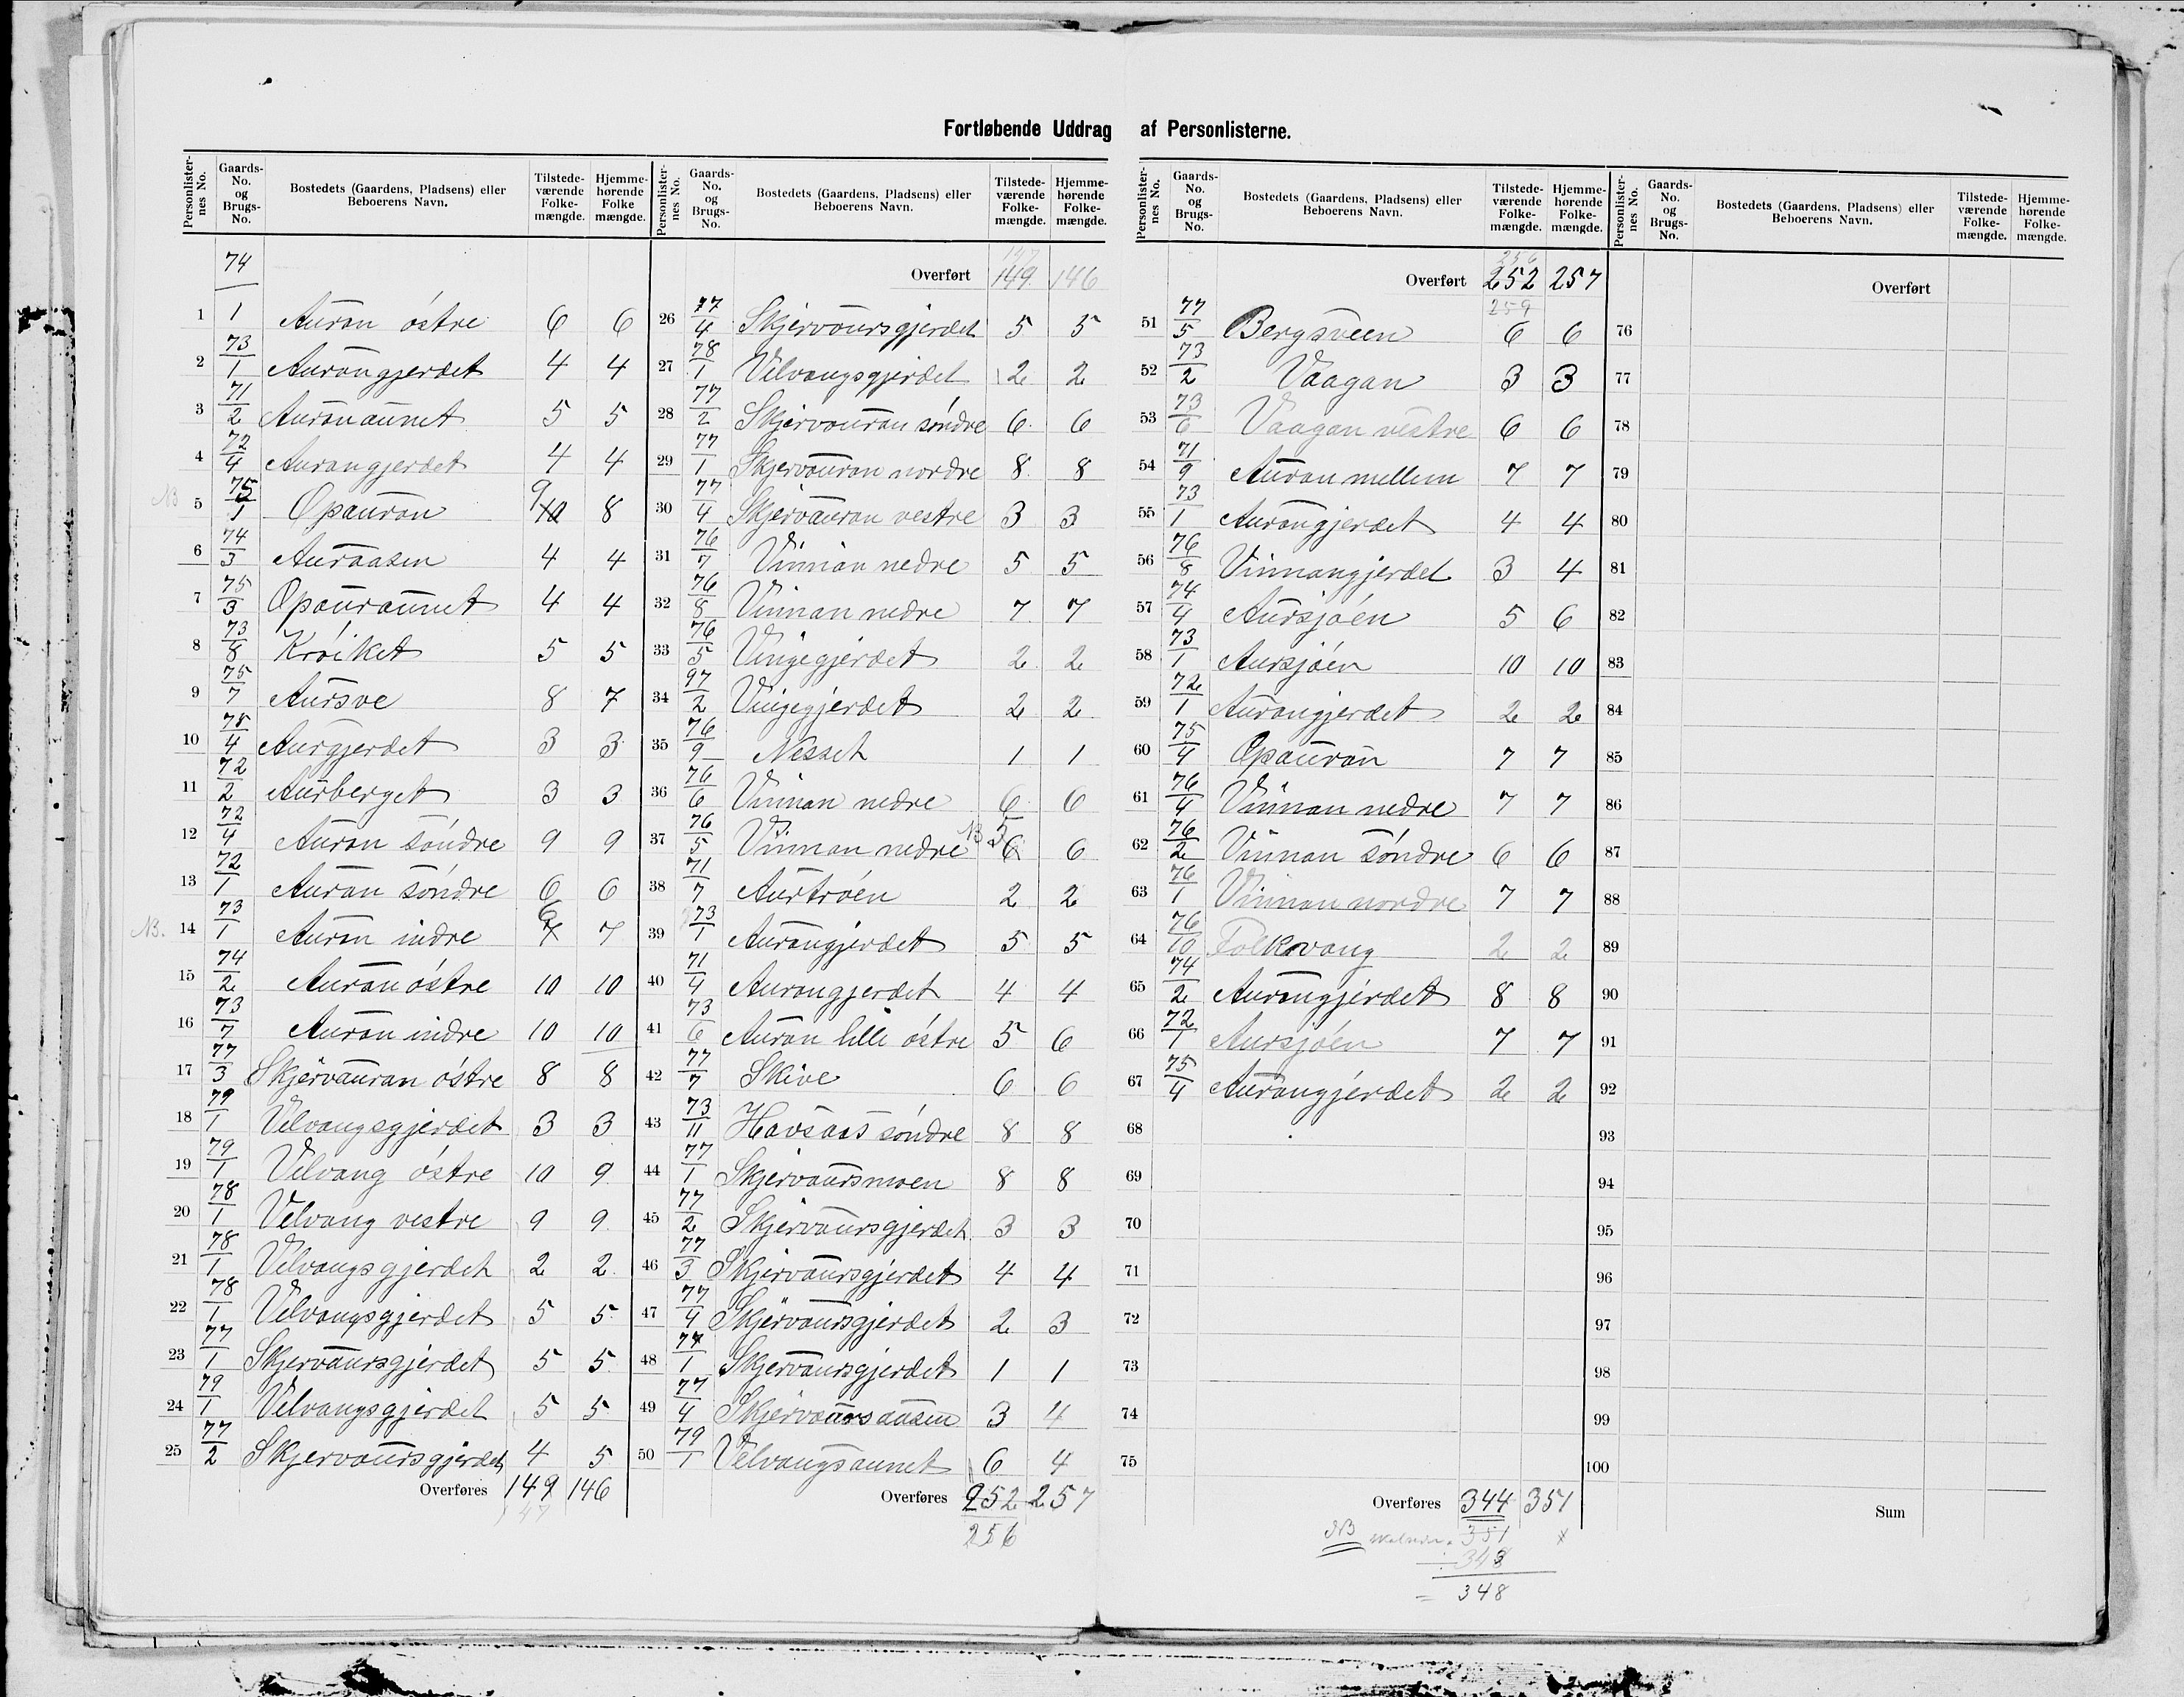 Fortløbende Uddrag af Personlisterne.
Personlisternes No. Gaards-No. og Brugs-No. Bostedets (Gaardens, Pladsens) eller Beboerens Navn. Tilstedeværende Folkemængde. Hjemmehørende Folkemængde.
74
1 1 Auran östre 6 6
2 73/1 Aurangjerdet 4 4
3 71/2 Auranaunet 5 5
4 72/4 Aurangjerdet 4 4
NB 5 75/1 Opauran 9 10 8
6 74/3 Auraasen 4 4
7 75/3 Opauraunet 4 4
8 73/8 Kröiket 5 5
9 75/7 Aursve 8 7
10 78/4 Aurgjerdet 3 3
11 72/2 Aurberget 3 3
12 72/4 Auran söndre 9 9
13 72/1 Auran söndre 6 6
NB. 14 73/1 Auran indre 6 7 7
15 74/2 Auran östre 10 10
16 73/7 Auran indre 10 10
17 77/3 Skjervauran östre 8 8
18 79/1 Velvangsgjerdet 3 3
19 79/1 Velvang östre 10 9
20 78/1 Velvang vestre 9 9
21 78/1 Velvangsgjerdet 2 2
22 78/1 Velvangsgjerdet 5 5
23 77/1 Skjervaursgjerdet 5 5
24 79/1 Velvangsgjerdet 5 5
25 77/2 Skjervaursgjerdet 4 5
Overføres 149 146
147
Personlisternes No. Gaards-No. og Brugs-No. Bostedets (Gaardens, Pladsens) eller Beboerens Navn. Tilstedeværende Folkemængde. Hjemmehørende Folkemængde.
147
Overført 149 146
26 77/4 Skjervaursgjerdet 5 5
27 78/1 Velvangsgjerdet 2 2
28 77/2 Skjervauran söndre 6 6
29 77/1 Skjervauran nordre 8 8
30 77/4 Skjervauran vestre 3 3
31 76/7 Vinnan nedre 5 5
32 76/8 Vinnan nedre 7 7
33 76/5 Vingegjerdet 2 2
34 97/2 Vingegjerdet 2 2
35 76/9 Nesset 1 1
36 76/6 Vinnan nedre 6 6
37 76/5 Vinnan nedre NB 5 6 6
38 71/7 Aurtröen 2 2
39 73/1 Aurangjerdet 5 5
40 71/4 Aurangjerdet 4 4
41 73/6 Auran lille östre 5 6
42 77/7 Skive 6 6
43 73/11 Havsaas söndre 8 8
44 77/1 Skjervaursmoen 8 8
45 77/2 Skjervaursgjerdet 3 3
46 77/3 Skjervaursgjerdet 4 4
47 77/4 Skjervaursgjerdet 2 3
48 77/1 Skjervaursgjerdet 1 1
49 77/4 Skjervaursaasen 3 4
50 79/1 Velvangsaunet 6 4
Overføres 252 257
256
Personlisternes No. Gaards-No. og Brugs-No. Bostedets (Gaardens, Pladsens) eller Beboerens Navn. Tilstedeværende Folkemængde. Hjemmehørende Folkemængde.
256
Overført 252 257
259
51 77/5 Bergsveen 6 6
52 73/2 Vaagan 3 3
53 73/6 Vaagan vestre 6 6
54 71/9 Auran mellem 7 7
55 73/1 Aurangjerdet 4 4
56 76/8 Vinnangjerdet 3 4
57 74/4 Aursjöen 5 6
58 73/1 Aursjöen 10 10
59 72/1 Aurangjerdet 2 2
60 75/4 Opauran 7 7
61 76/4 Vinnan nedre 7 7
62 76/2 Vinnan söndre 6 6
63 76/1 Vinnan nordre 7 7
64 76/10 Folkvang 2 2
65 74/2 Aurangjerdet 8 8
66 72/1 Aursjöen 7 7
67 75/4 Aurangjerdet 2 2
68
69
70
71
72
73
74
75
Overføres 344 351
NB 351 x
348
= 348
Personlisternes No. Gaards-No. og Brugs-No. Bostedets (Gaardens, Pladsens) eller Beboerens Navn. Tilstedeværende Folkemængde. Hjemmehørende Folkemængde.
Overført
76
77
78
79
80
81
82
83
84
85
86
87
88
89
90
91
92
93
94
95
96
97
98
99
100
Sum